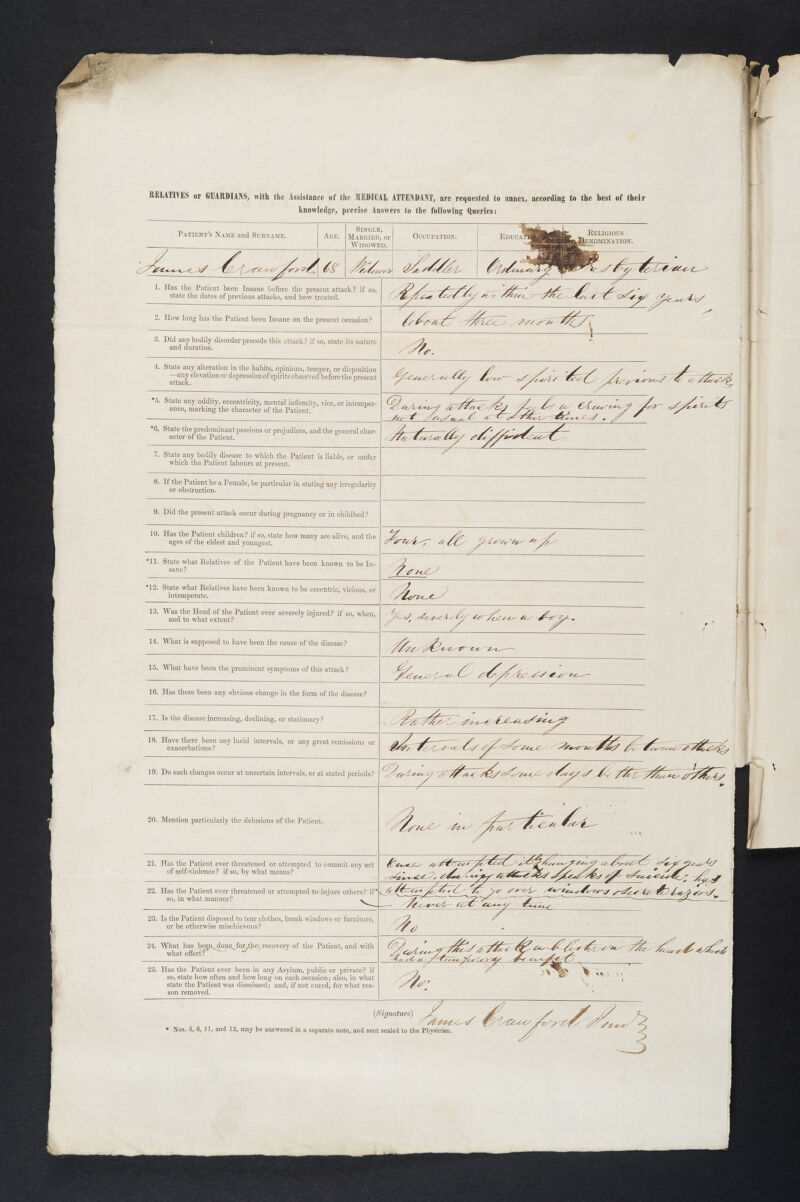 RELATIVES or GUARDIANS, with the Assistance of the MEDICAL ATTENDANT, are requested to annex, according to the best of their
knowledge, precise Answers to the following Queries:
PATIENT'S NAME and SURNAME. AGE. SINGLE, MARRIED, or WIDOWED. OCCUPATION. RELIGIOUS DENOMINATION.
James Crawford 68 Widower Saddler Ordinary
1. Has the Patient been Insane before the present attack? if so,
state the dates of previous attacks, and how treated.
Repeatedly within the last six years
2. How long has the Patient been Insane on the present occasion?
About three months
3. Did any bodily disorder precede this attack? if so, state its nature
and duration.
No.
4. State any alteration in the habits, opinions, temper, or disposition
—any elevation or depression of spirits observed before the present
attack.
Generally low spirited previous to attack
*5. State any oddity, eccentricity, mental infirmity, vice, or intemper-
ance, marking the character of the Patient.
During attacks feels a craving for spirits
not usual at other times.
*6. State the predominant passions or prejudices, and the general char-
acter of the Patient.
Naturally diffident
7. State any bodily disease to which the Patient is liable, or under
which the Patient labours at present.
8. If the Patient be a Female, be particular in stating any irregularity
or obstruction.
9. Did the present attack occur during pregnancy or in childbed?
10. Has the Patient children? if so, state how many are alive, and the
ages of the eldest and youngest.
Four, all grown up
*11. State what Relatives of the Patient have been known to be In-
sane?
None
*12. State what Relatives have been known to be eccentric, vicious, or
intemperate.
None
13. Was the Head of the Patient ever severely injured? if so, when,
and to what extent?
Yes, severely when a boy.
14. What is supposed to have been the cause of the disease?
Unknown
15. What have been the prominent symptoms of this attack?
General depression
16. Has there been any obvious change in the form of the disease?
17. Is the disease increasing, declining, or stationary?
Rather increasing
18. Have there been any lucid intervals, or any great remissions or
exacerbations?
Intervals of some months between attacks
19. Do such changes occur at uncertain intervals, or at stated periods?
During attacks some days better than others.
20. Mention particularly the delusions of the Patient.
None in particular
21. Has the Patient ever threatened or attempted to commit any act
of self-violence? if so, by what means?
Once attempted it by hanging about six years
since, during attacks speaks of suicide; has
attempted to go over windows & secrete razors.
22. Has the Patient ever threatened or attempted to injure others? if
so, in what manner?
Never at any time
23. Is the Patient disposed to tear clothes, break windows or furniture,
or be otherwise mischievous?
No
24. What has been done for the recovery of the Patient, and with
what effect?
During this attack a blister on the head which
had a temporary benefit
25. Has the Patient ever been in any Asylum, public or private? if
so, state how often and how long on each occasion; also, in what
state the Patient was dismissed; and, if not cured, for what rea-
son removed.
No.
(Signature) James Crawford Junr
* Nos. 5, 6, 11, and 12, may be answered in a separate note, and sent sealed to the Physician.